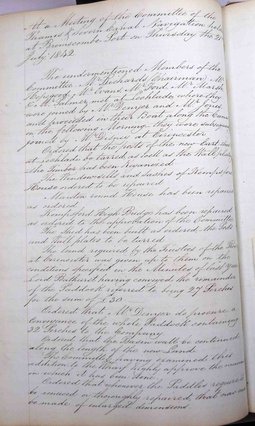 At a Meeting of the Committee of the
Thames & Severn Canal Navigation held
at Brimscombe Port on Thursday the 21
July 1842
The undermentioned Members of the
Committee Mr Chairman Mr
Mr Evans Mr Ford Mr Marsh
& Mr Salmon met at Lechlade, where they
were joined by Mr Denyer and Mr Jones
and proceeded in their Boat along the Canal
on the following Morning they were
joined by Mr at Cirencester
Ordered that the Posts of the new
at Lechlade be tarred as well as the Wall plates
the Timber has been
The and Sashes of Kempsford
House ordered to be repaired
Marston round House has been repaired
as ordered
Kempsford High Bridge has been repaired
as ordered to the approbation of the Committee
The Shed has been built as ordered, the Posts
and Wall plates to be tarred
The Land required by the Trustees of the
at Cirencester was given up to them on the
condition specified in the Minutes of last Year
Lord Bathurst having conveyed the remainder
of the Paddock referred to being 27 Perches
for the sum of £30.
Ordered that Mr Denyer do procure a
Conveyance of the whole Paddock containing
32 Perches to the Company
Ordered that the Basin wall be continued
along the length of the new Land
The Committee having examined this
addition to the Wharf highly approve the manner
in which it has been done
Ordered that whenever the Puddles required
to be renewed or thoroughly repaired, that new
be made of enlarged dimensions